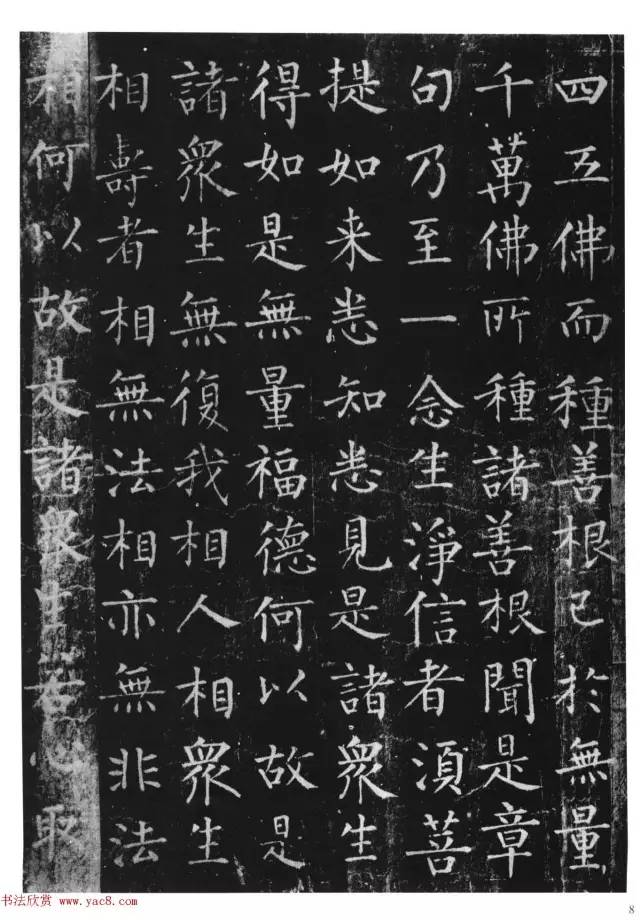 四五佛而種善根已於無量
千萬佛所種諸善根聞是章
句乃至一念生淨信者須菩
提如来悉知悉見是諸衆生
得如是無量福德何以故是
諸衆生無復我相人相衆生
相壽者相無法相亦無非法
相何以故是諸衆生若心取
书法欣赏 www.yac8.com
8